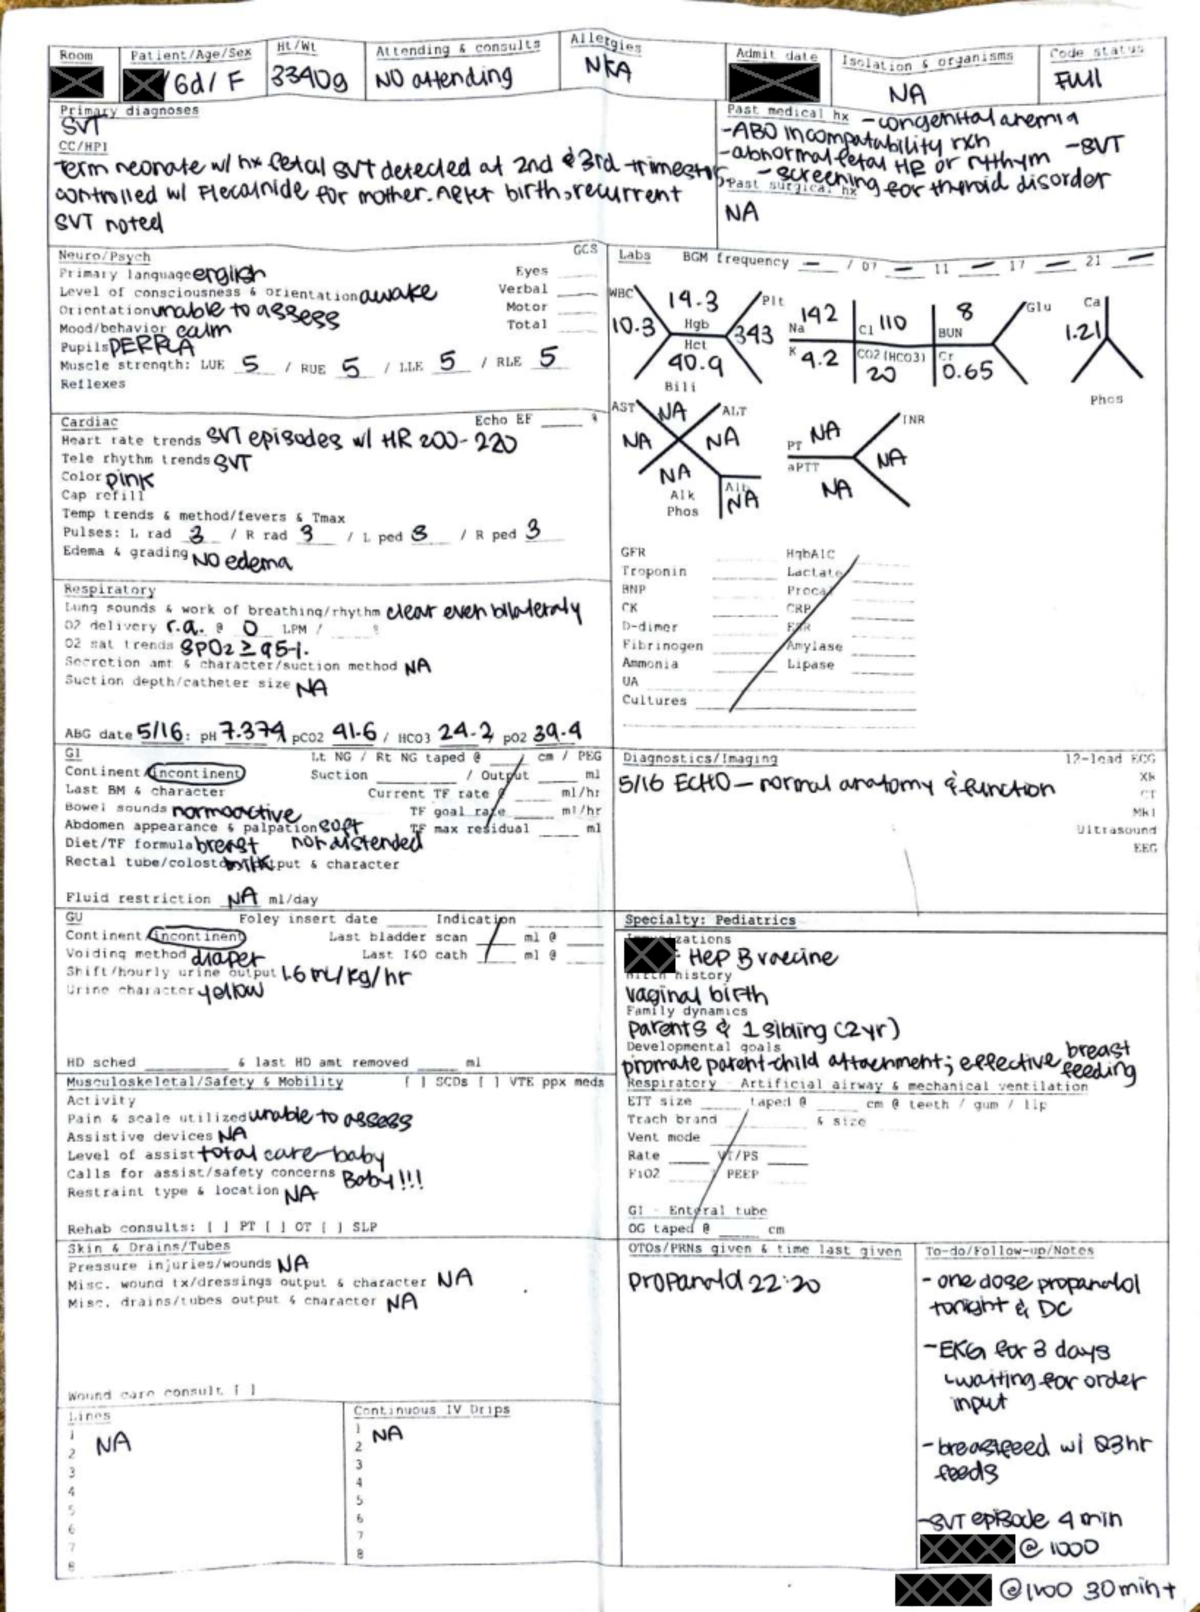 Room Patient/Age/Sex Ht/Wt Attending & consults Allergies Admit date Isolation & organisms Code status
/6d/F 3340g NO attending NKA NA Full
Primary diagnoses
SVT
CC/HPI
Term neonate w/ hx fetal SVT detected at 2nd & 3rd trimester,
controlled w/ Flecainide for mother. After birth, recurrent
SVT noted
Past medical hx - congenital anemia
- ABO incompatability rxn
- abnormal fetal HR or rythym - SVT
- screening for thyroid disorder
Past surgical hx
NA
Neuro/Psych GCS
Primary language english Eyes
Level of consciousness & orientation awake Verbal
Orientation unable to assess Motor
Mood/behavior calm Total
Pupils PERRLA
Muscle strength: LUE 5 / RUE 5 / LLE 5 / RLE 5
Reflexes
Labs BGM frequency — / 07 — 11 — 17 — 21 —
WBC 10.3 14.3 Hgb Hct 40.9 Plt 343
Na 142 Cl 110 8 BUN Glu
K 4.2 CO2 (HCO3) 20 Cr 0.65
Ca 1.21 Phos
Bili NA
AST NA ALT NA
NA Alk Phos
Alb NA
PT NA INR NA
aPTT NA
Cardiac Echo EF %
Heart rate trends SVT episodes w/ HR 200-220
Tele rhythm trends SVT
Color pink
Cap refill
Temp trends & method/fevers & Tmax
Pulses: L rad 3 / R rad 3 / L ped 3 / R ped 3
Edema & grading NO edema
GFR HgbA1C
Troponin Lactate
BNP Procal
CK CRP
D-dimer ESR
Fibrinogen Amylase
Ammonia Lipase
UA
Cultures
Respiratory
Lung sounds & work of breathing/rhythm clear even bilateraly
O2 delivery r.a. @ 0 LPM / %
O2 sat trends SPO2 ≥ 95%
Secretion amt & character/suction method NA
Suction depth/catheter size NA
ABG date 5/16: pH 7.374 pCO2 41.6 / HCO3 24.2 pO2 39.4
GI Lt NG / Rt NG taped @ cm / PEG
Continent/incontinent Suction / Output ml
Last BM & character Current TF rate @ ml/hr
Bowel sounds normoactive TF goal rate ml/hr
Abdomen appearance & palpation soft not distended TF max residual ml
Diet/TF formula breast milk
Rectal tube/colostomy output & character
Fluid restriction NA ml/day
Diagnostics/Imaging 12-lead ECG
5/16 ECHO — normal anatomy & function XR
CT
MRI
Ultrasound
EEG
GU Foley insert date Indication
Continent/incontinent Last bladder scan ml @
Voiding method diaper Last I&O cath ml @
Shift/hourly urine output 1.6 ml/kg/hr
Urine character yellow
HD sched & last HD amt removed ml
Specialty: Pediatrics
izations
Hep B vaccine
Birth history
vaginal birth
Family dynamics
parents & 1 sibling (2yr)
Developmental goals
promate parent-child attachment; effective breast feeding
Musculoskeletal/Safety & Mobility [ ] SCDs [ ] VTE ppx meds
Activity
Pain & scale utilized unable to assess
Assistive devices NA
Level of assist total care - baby
Calls for assist/safety concerns Baby!!!
Restraint type & location NA
Rehab consults: [ ] PT [ ] OT [ ] SLP
Respiratory - Artificial airway & mechanical ventilation
ETT size taped @ cm @ teeth / gum / lip
Trach brand & size
Vent mode
Rate VT/PS
FiO2 PEEP
GI - Enteral tube
OG taped @ cm
Skin & Drains/Tubes
Pressure injuries/wounds NA
Misc. wound tx/dressings output & character NA
Misc. drains/tubes output & character NA
Wound care consult [ ]
OTOs/PRNs given & time last given
Propanolol 22:20
To-do/Follow-up/Notes
- one dose propanolol
tonight & DC
- EKG for 3 days
waiting for order
input
- breastfeed w/ Q3hr
feeds
- SVT episode 4 min
@ 1000
@ 1400 30min+
Lines
1
2 NA
3
4
5
6
7
8
Continuous IV Drips
1 NA
2
3
4
5
6
7
8